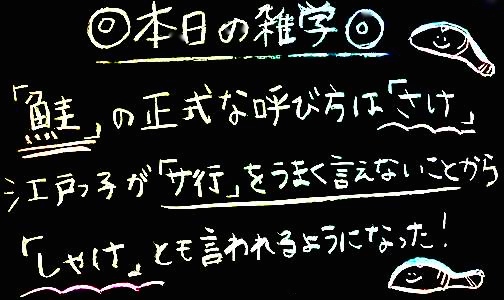 ◎本日の雑学◎
「鮭」の正式な呼び方は「さけ」
江戸っ子が「サ行」をうまく言えないことから
「しゃけ」とも言われるようになった!